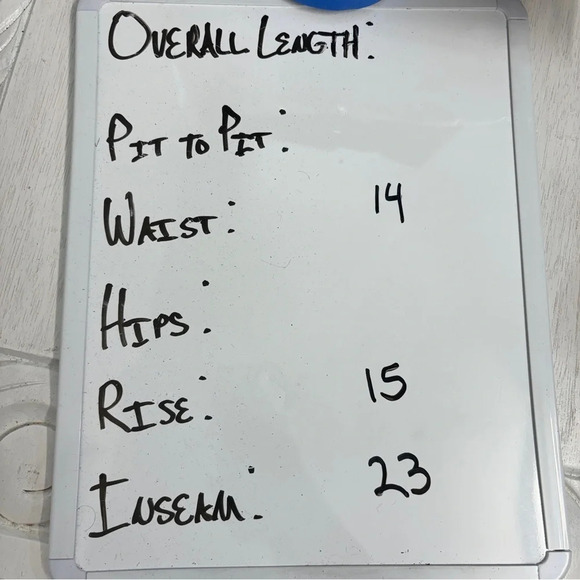 OVERALL LENGTH:
PIT TO PIT:
WAIST: 14
HIPS:
RISE: 15
INSEAM: 23